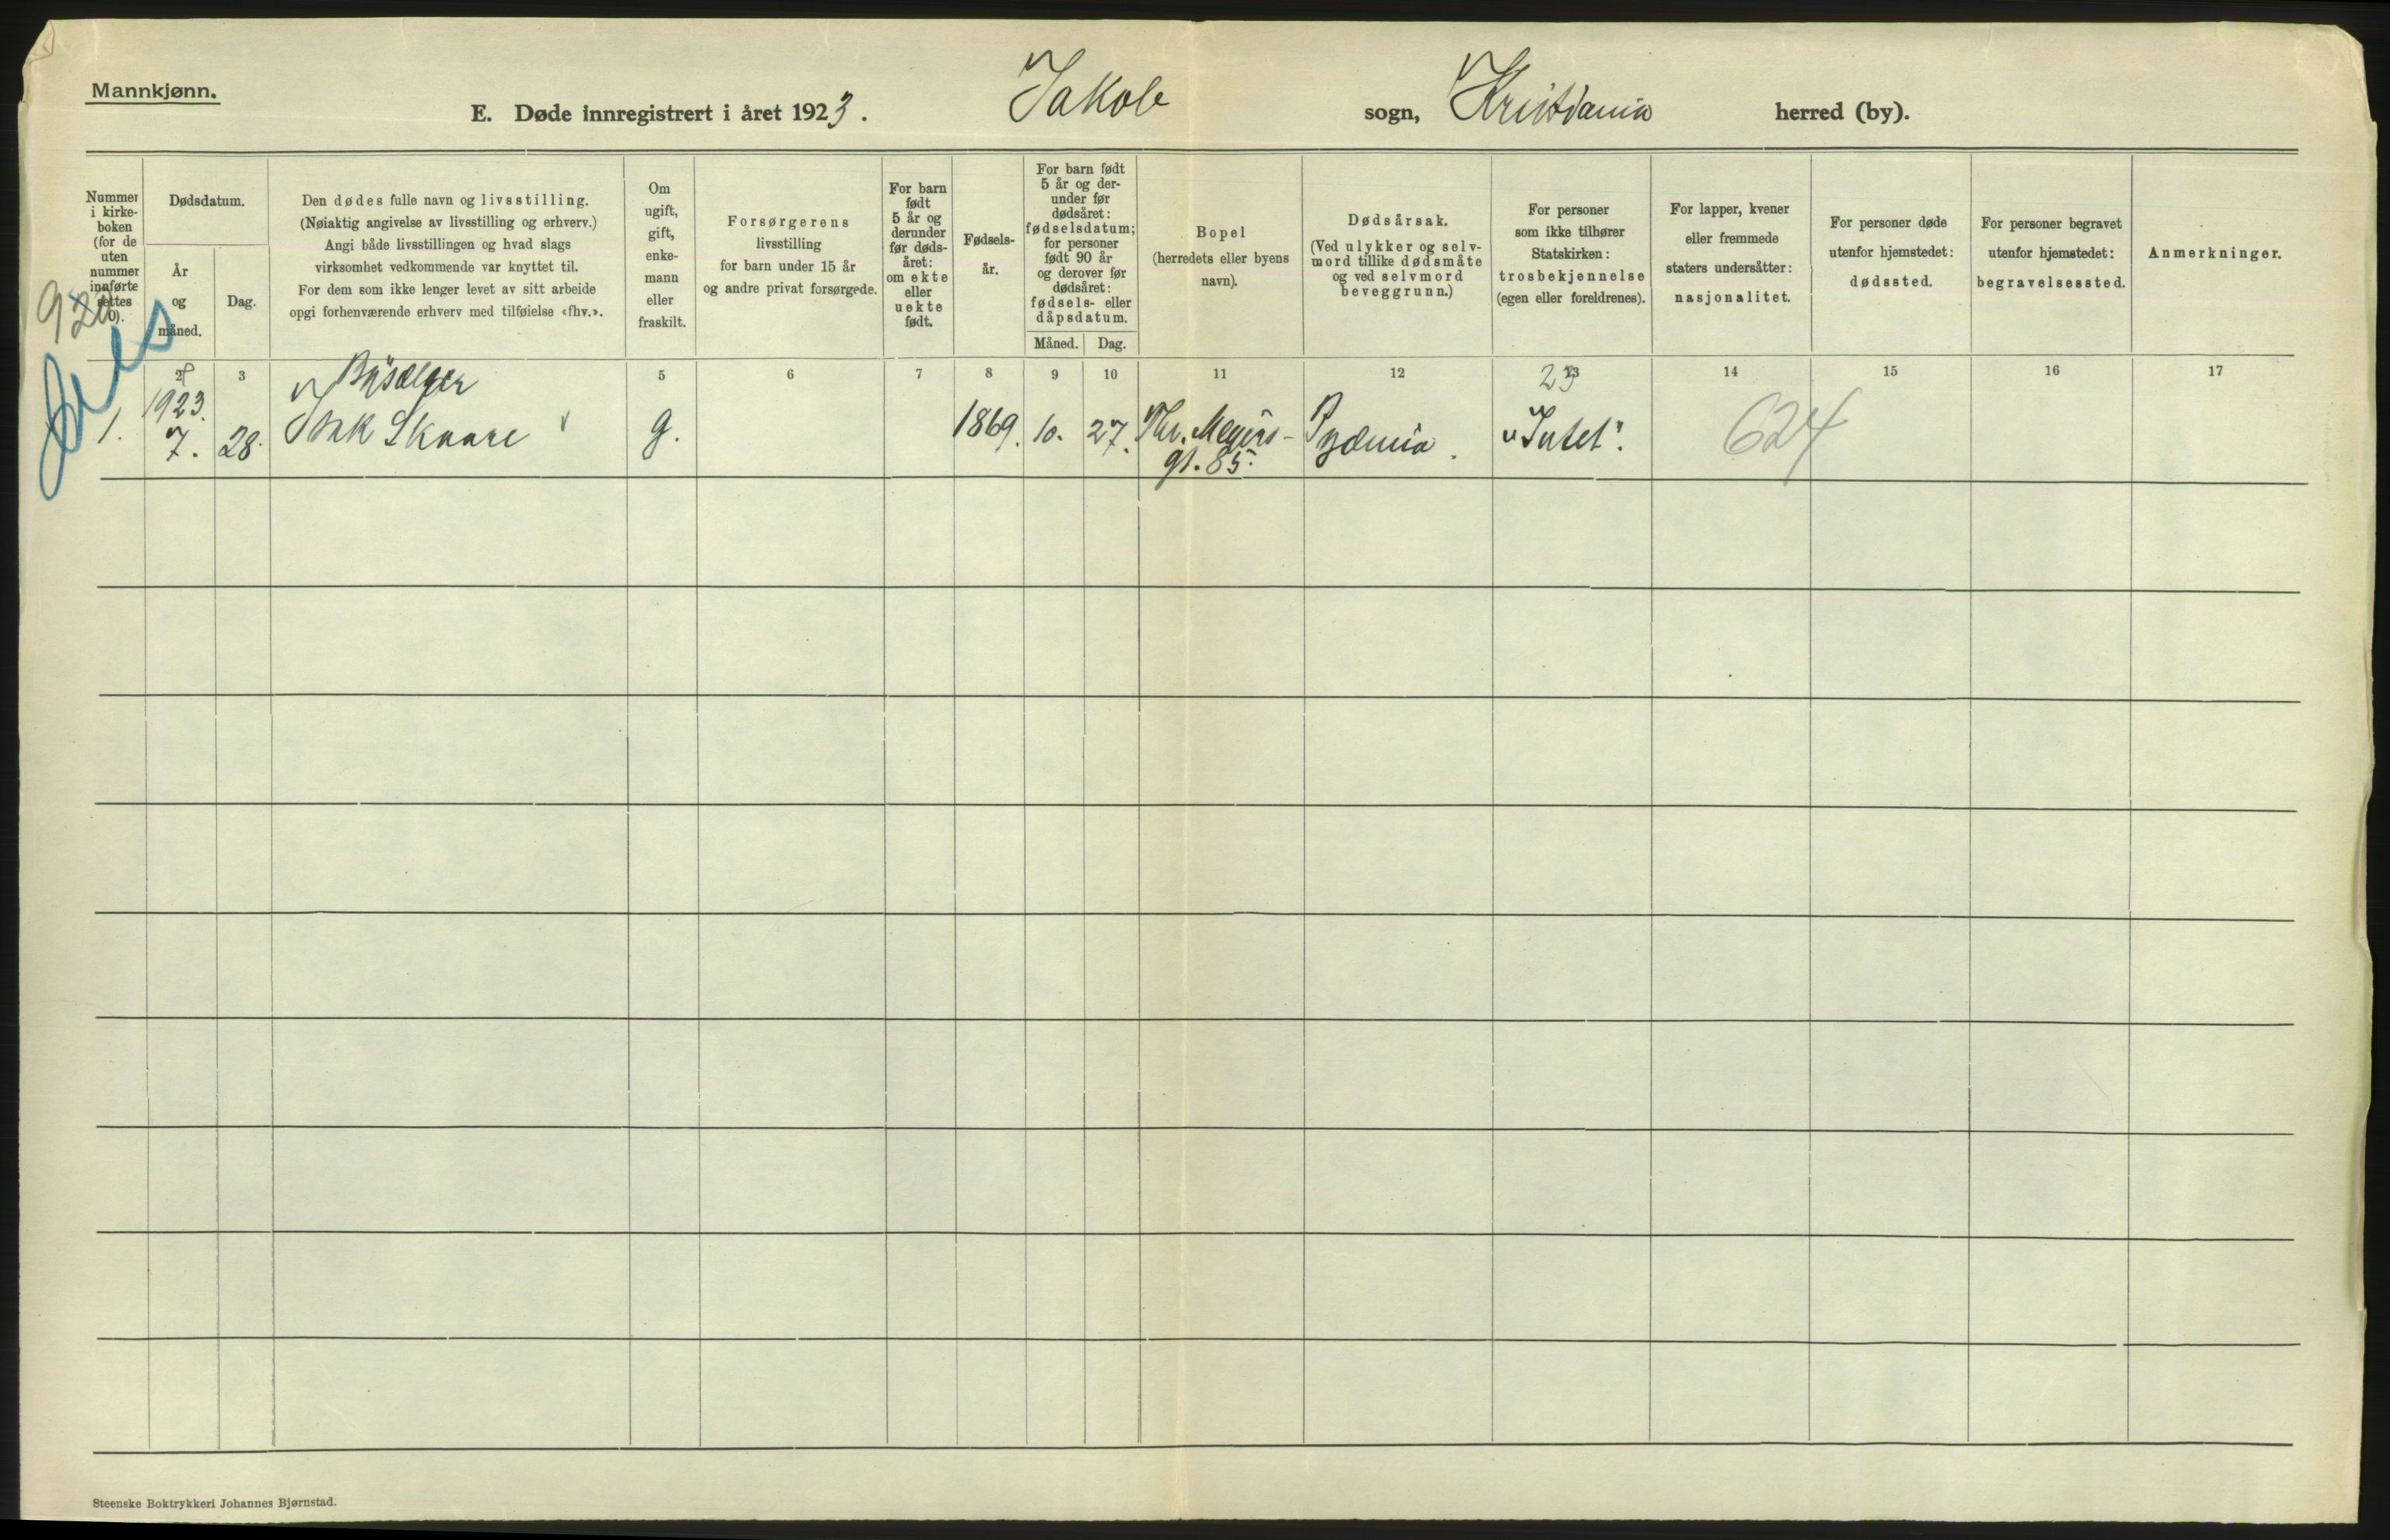 Mannkjønn.
E. Døde innregistrert i året 1923. Jakob sogn, Kristiania herred (by).
Nummer
i kirke-
boken
(for de
uten
nummer
innførte
settes
0).
Dødsdatum.
År
og
måned.
Dag.
Den dødes fulle navn og livsstilling.
(Nøiaktig angivelse av livsstilling og erhverv.)
Angi både livsstillingen og hvad slags
virksomhet vedkommende var knyttet til.
For dem som ikke lenger levet av sitt arbeide
opgi forhenværende erhverv med tilføielse «fhv.».
Om
ugift,
gift,
enke-
mann
eller
fraskilt.
Forsørgerens
livsstilling
for barn under 15 år
og andre privat forsørgede.
For barn
født
5 år og
derunder
før døds-
året:
om ekte
eller
uekte
født.
Fødsels-
år.
For barn født
5 år og der-
under før
dødsåret:
fødselsdatum;
for personer
født 90 år
og derover før
dødsåret:
fødsels- eller
dåpsdatum.
Måned. Dag.
Bopel
(herredets eller byens
navn).
Dødsårsak.
(Ved ulykker og selv-
mord tillike dødsmåte
og ved selvmord
beveggrunn.)
For personer
som ikke tilhører
Statskirken:
trosbekjennelse
(egen eller foreldrenes).
For lapper, kvener
eller fremmede
staters undersåtter:
nasjonalitet.
For personer døde
utenfor hjemstedet:
dødssted.
For personer begravet
utenfor hjemstedet:
begravelsessted.
Anmerkninger.
2 3 5 6 7 8 9 10 11 12 13 14 15 16 17
23
1923.
1. 7. 28. Skaare g. 1869. 10. 27. Thv. Meyers-
gt. 85. Pyæmia. "Intet". 624
Steenske Boktrykkeri Johannes Bjørnstad.